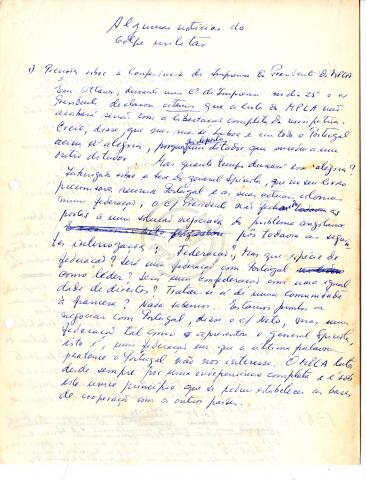 Algumas notícias do
Golpe militar
1) Precisão sobre a Conferência de Imprensa do Presidente do MPLA
Em Ottawa, durante uma C. de Imprensa no dia 25 o
Presidente declarou que a luta do MPLA não
acabará senão com a libertação completa da nossa pátria.
Creio, disse, que nas ruas de Lisboa e em todo o Portugal
reina a alegria, porque foi deposto um ditador que sucedeu a um
outro ditador. Mas quanto tempo durará essa alegria?
Interrogado sobre a tese do general Spínola, que no seu livro
preconisa reunir Portugal e as suas colonias
numa federação, o c/ Presidente não fechou as
portas a uma solução negociada do problema angolano.
pôs todavia as seguin
tes interrogações: Federação? Mas que espécie de
federação? Será uma federação com Portugal
como líder? Será uma confederação com uma igual
dade de direitos? Tratar-se-á de uma comunidade
à francesa? Nada sabemos. Estamos prontos a
negociar com Portugal, disse o c/ Neto, mas uma
federação tal como a apresentou o general Spínola,
isto é, uma federação em que a última palavra
pertence a Portugal não nos interessa. O MPLA luta
desde sempre por uma independência completa e é sobre
este único princípio que se podem estabelecer as bases
de cooperação com os outros países.